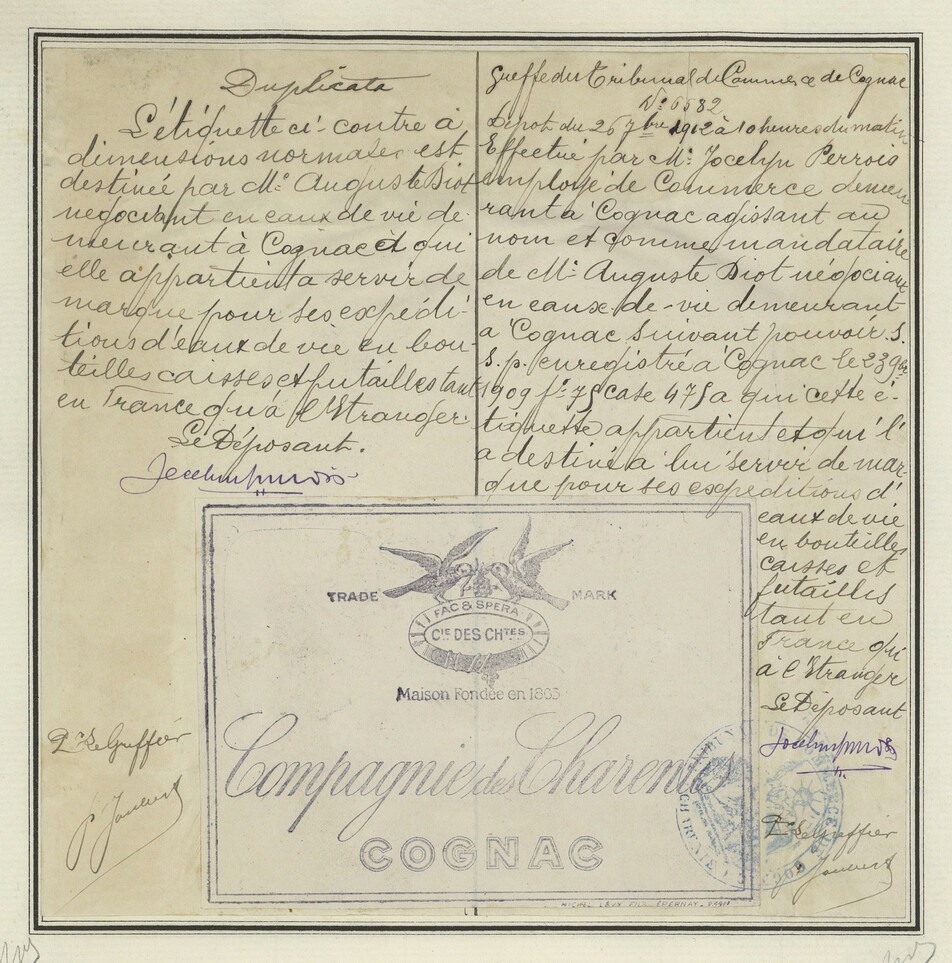 Duplicata
L'étiquette ci-contre à
dimensions normales est
destinée par Mr. Auguste Diot
négociant en eaux de vie de-
meurant à Cognac et qui
elle appartient a servir de
marque pour ses expédi-
tions d'eaux de vie en bou-
teilles caisses et futailles tant
en France qu'à l'Etranger.
Le Déposant.
Greffe du Tribunal de Commerce de Cognac
No. 6532
Dépot du 26 7bre 1912 à 10 heures du matin
Effectué par Mr. Jocelyn Perrois
employé de Commerce demeu
rant à Cognac agissant au
nom et comme mandataire
de Mr. Auguste Diot négociant
en eaux-de-vie demeurant
à Cognac suivant pouvoir S.
S. p. enregistré à Cognac le 23 9bre
1909 fo. 75 case 475 a qui cette é-
tiquette appartient et qu'il
a destiné a lui servir de mar-
que pour ses expeditions d'
eaux de vie
en bouteilles
caisses et
futailles
tant en
France qu'
à l'Etranger
Le Déposant
TRADE MARK
FAC & SPERA
CIE DES CHTES
Maison Fondée en 1863
Compagnie des Charentes
COGNAC
Pr Le Greffier
Pr Le Greffier